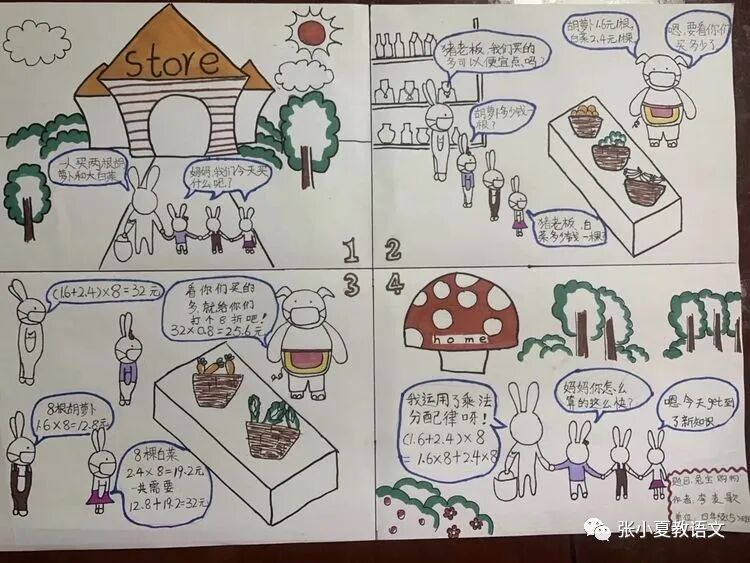 store
一人买两根胡
萝卜和大白菜
妈妈,我们今天买
什么呢?
1
猪老板,我们买的
多可以便宜点吗?
胡萝卜1.6元1根,
白菜2.4元1棵
嗯,要看你们
买多少了
胡萝卜多少钱
一根?
猪老板,白
菜多少钱一棵?
2
(1.6+2.4)×8=32元
看你们买的
多,就给你们
打个8折吧!
32×0.8=25.6元
8根胡萝卜
1.6×8=12.8元
8棵白菜
2.4×8=19.2元
一共需要
12.8+19.2=32元
3
4
home
我运用了乘法
分配律呀!
(1.6+2.4)×8
=1.6×8+2.4×8
妈妈你怎么
算的这么快?
嗯,今天get到
了新知识
题目:兔宝购物
作者:李麦歌
张小夏教语文